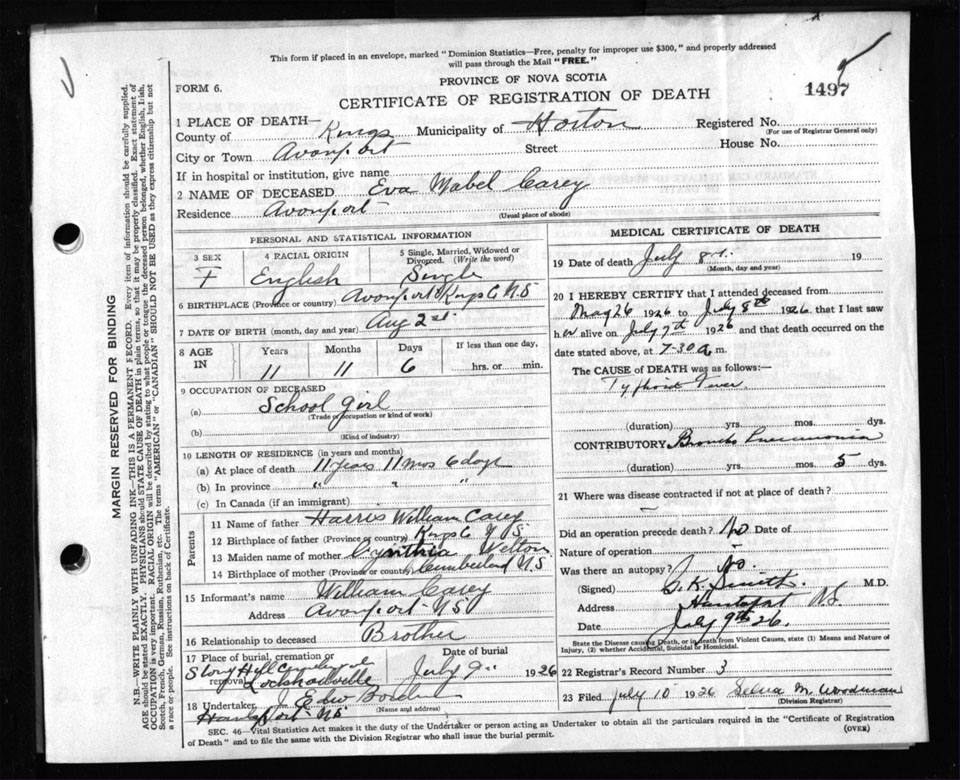 This form if placed in an envelope, marked "Dominion Statistics—Free, penalty for improper use $300," and properly addressed
will pass through the Mail "FREE."
FORM 6.
PROVINCE OF NOVA SCOTIA
CERTIFICATE OF REGISTRATION OF DEATH
1497
1 PLACE OF DEATH—
County of Kings Municipality of Horton Registered No.
(For use of Registrar General only)
City or Town Avonport Street House No.
If in hospital or institution, give name
2 NAME OF DECEASED Eva Mabel Carey
Residence Avonport
(Usual place of abode)
PERSONAL AND STATISTICAL INFORMATION
3 SEX 4 RACIAL ORIGIN 5 Single, Married, Widowed or Divorced. (Write the word)
F English Single
6 BIRTHPLACE (Province or country) Avonport Kings Co NS
7 DATE OF BIRTH (month, day and year) Aug 2
8 AGE IN Years Months Days If less than one day,
11 11 6 hrs. or min.
9 OCCUPATION OF DECEASED
(a) School girl
(Trade or occupation or kind of work)
(b)
(Kind of industry)
10 LENGTH OF RESIDENCE (in years and months)
(a) At place of death 11 years 11 mos 6 days
(b) In province " " "
(c) In Canada (if an immigrant)
Parents
11 Name of father Harris William Carey
12 Birthplace of father (Province or country) Kings Co N.S.
13 Maiden name of mother Cynthia Welton
14 Birthplace of mother (Province or country) Cumberland N S
15 Informant's name William Carey
Address Avonport N S
16 Relationship to deceased Brother
17 Place of burial, cremation or removal Date of burial
July 9 1926
Lockhartville
18 Undertaker J Edw Borden
(Name and address)
Hantsport NS
MEDICAL CERTIFICATE OF DEATH
19 Date of death July 8 19
(Month, day and year)
20 I HEREBY CERTIFY that I attended deceased from
May 26 1926 to July 8th 1926. that I last saw
her alive on July 7th 1926 and that death occurred on the
date stated above, at 7-30 a m.
The CAUSE of DEATH was as follows:—
Typhoid Fever
(duration) yrs. mos. dys.
CONTRIBUTORY Broncho Pneumonia
(duration) yrs. mos. 5 dys.
21 Where was disease contracted if not at place of death?
—
Did an operation precede death? No Date of
Nature of operation —
Was there an autopsy? No.
(Signed) Smith. M.D.
Address Hantsport N.S.
Date July 9th 26.
State the Disease causing Death, or in death from Violent Causes, state (1) Means and Nature of
Injury, (2) whether Accidental, Suicidal or Homicidal.
22 Registrar's Record Number 3
23 Filed July 10 1926 Selina M. Woodman
(Division Registrar)
SEC. 46—Vital Statistics Act makes it the duty of the Undertaker or person acting as Undertaker to obtain all the particulars required in the "Certificate of Registration
of Death" and to file the same with the Division Registrar who shall issue the burial permit.
(OVER)
MARGIN RESERVED FOR BINDING
N.B.—WRITE PLAINLY WITH UNFADING INK—THIS IS A PERMANENT RECORD. Every item of information should be carefully supplied.
AGE should be stated EXACTLY. PHYSICIANS should STATE CAUSE OF DEATH in plain terms, so that it may be properly classified. Exact statement of
OCCUPATION is very important. RACIAL ORIGIN will be described by stating to what people or tongue the deceased person belonged, whether English, Irish,
Scotch, French, German, Russian, Ruthenian, etc. The terms "AMERICAN" or "CANADIAN" SHOULD NOT BE USED as they express citizenship but not
a race or people. See instructions on back of Certificate.